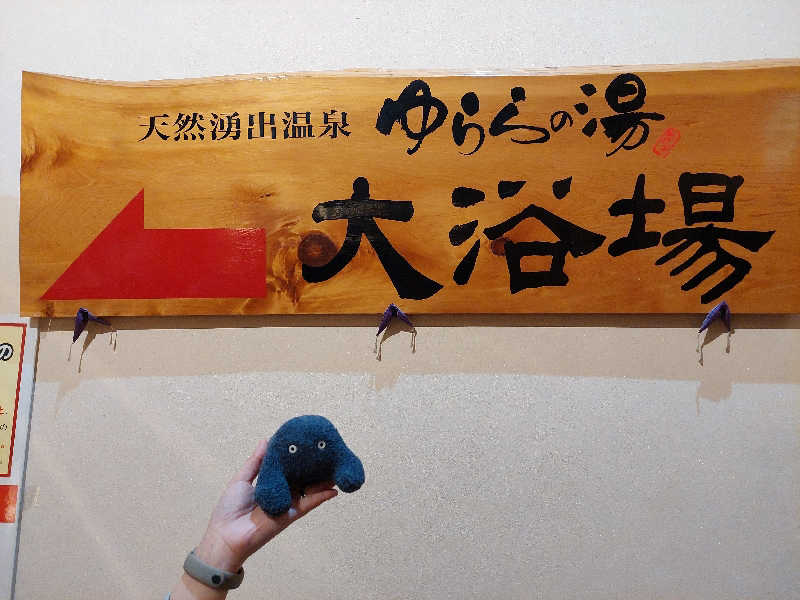 天然湧出温泉 ゆららの湯
大浴場
の